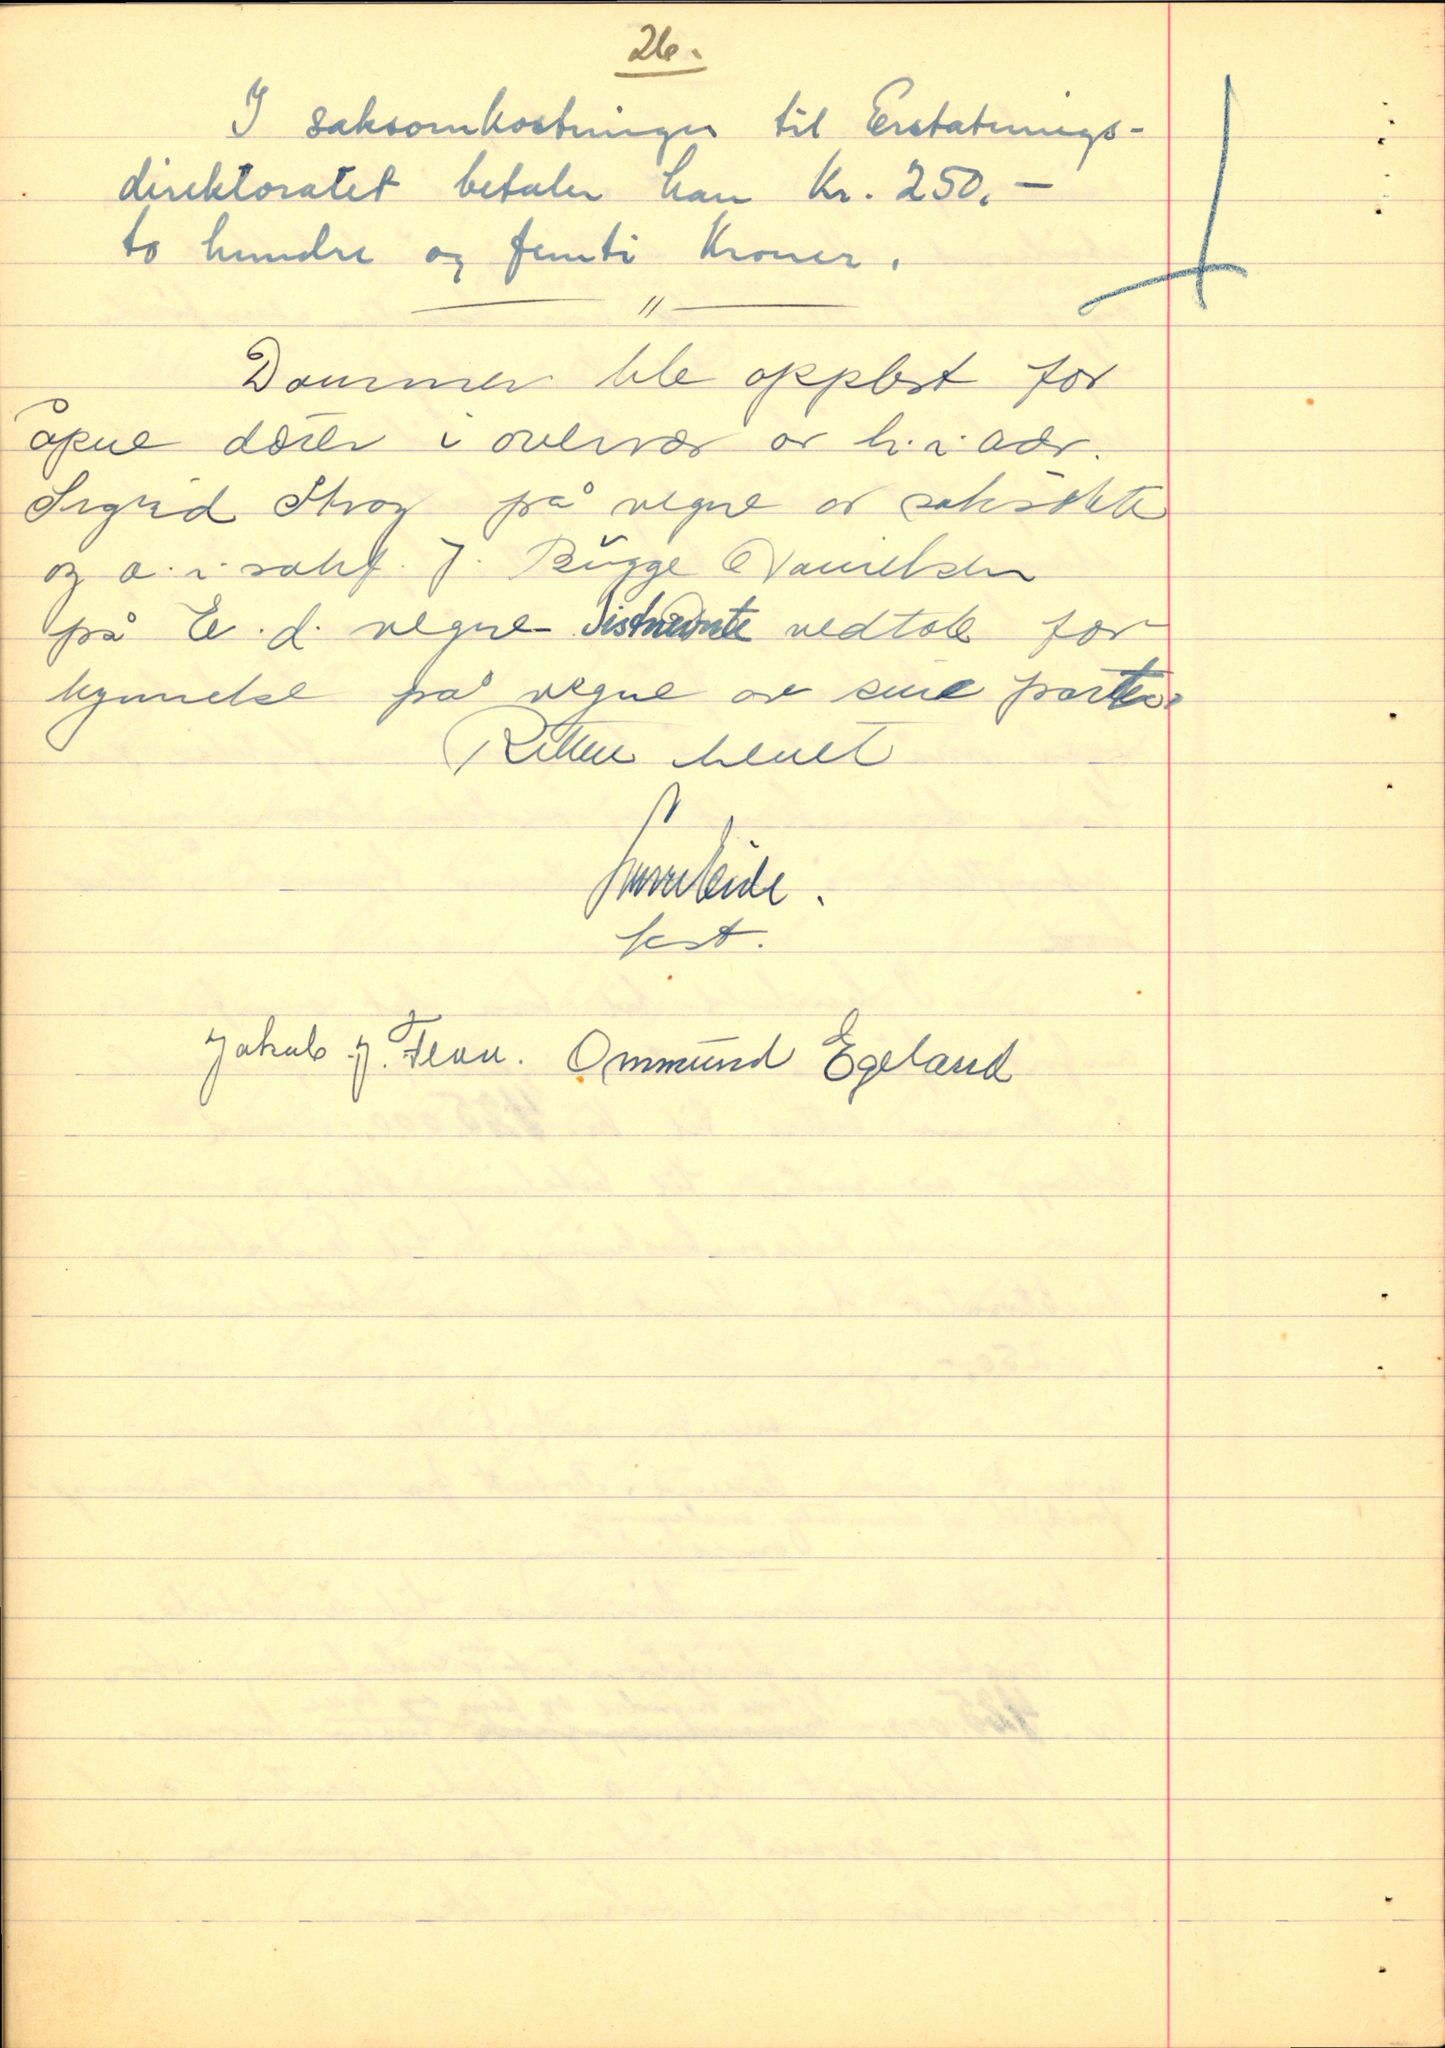 26.
I saksomkostninger til Erstatnings-
direktoratet betaler han Kr. 250.—
to hundre og femti Kroner.
Dommen ble opplest for
åpne dører i overvær av h.r.adv.
Sigrid Stray på vegne av saksøkte
og o.r.sakf. J. Bugge Danielsen
på E.d. vegne. Sistnevnte vedtok for
kynnelse på vegne av sine parter.
Retten hevet
fest.
Jakob J. Tean. Ommund Egeland